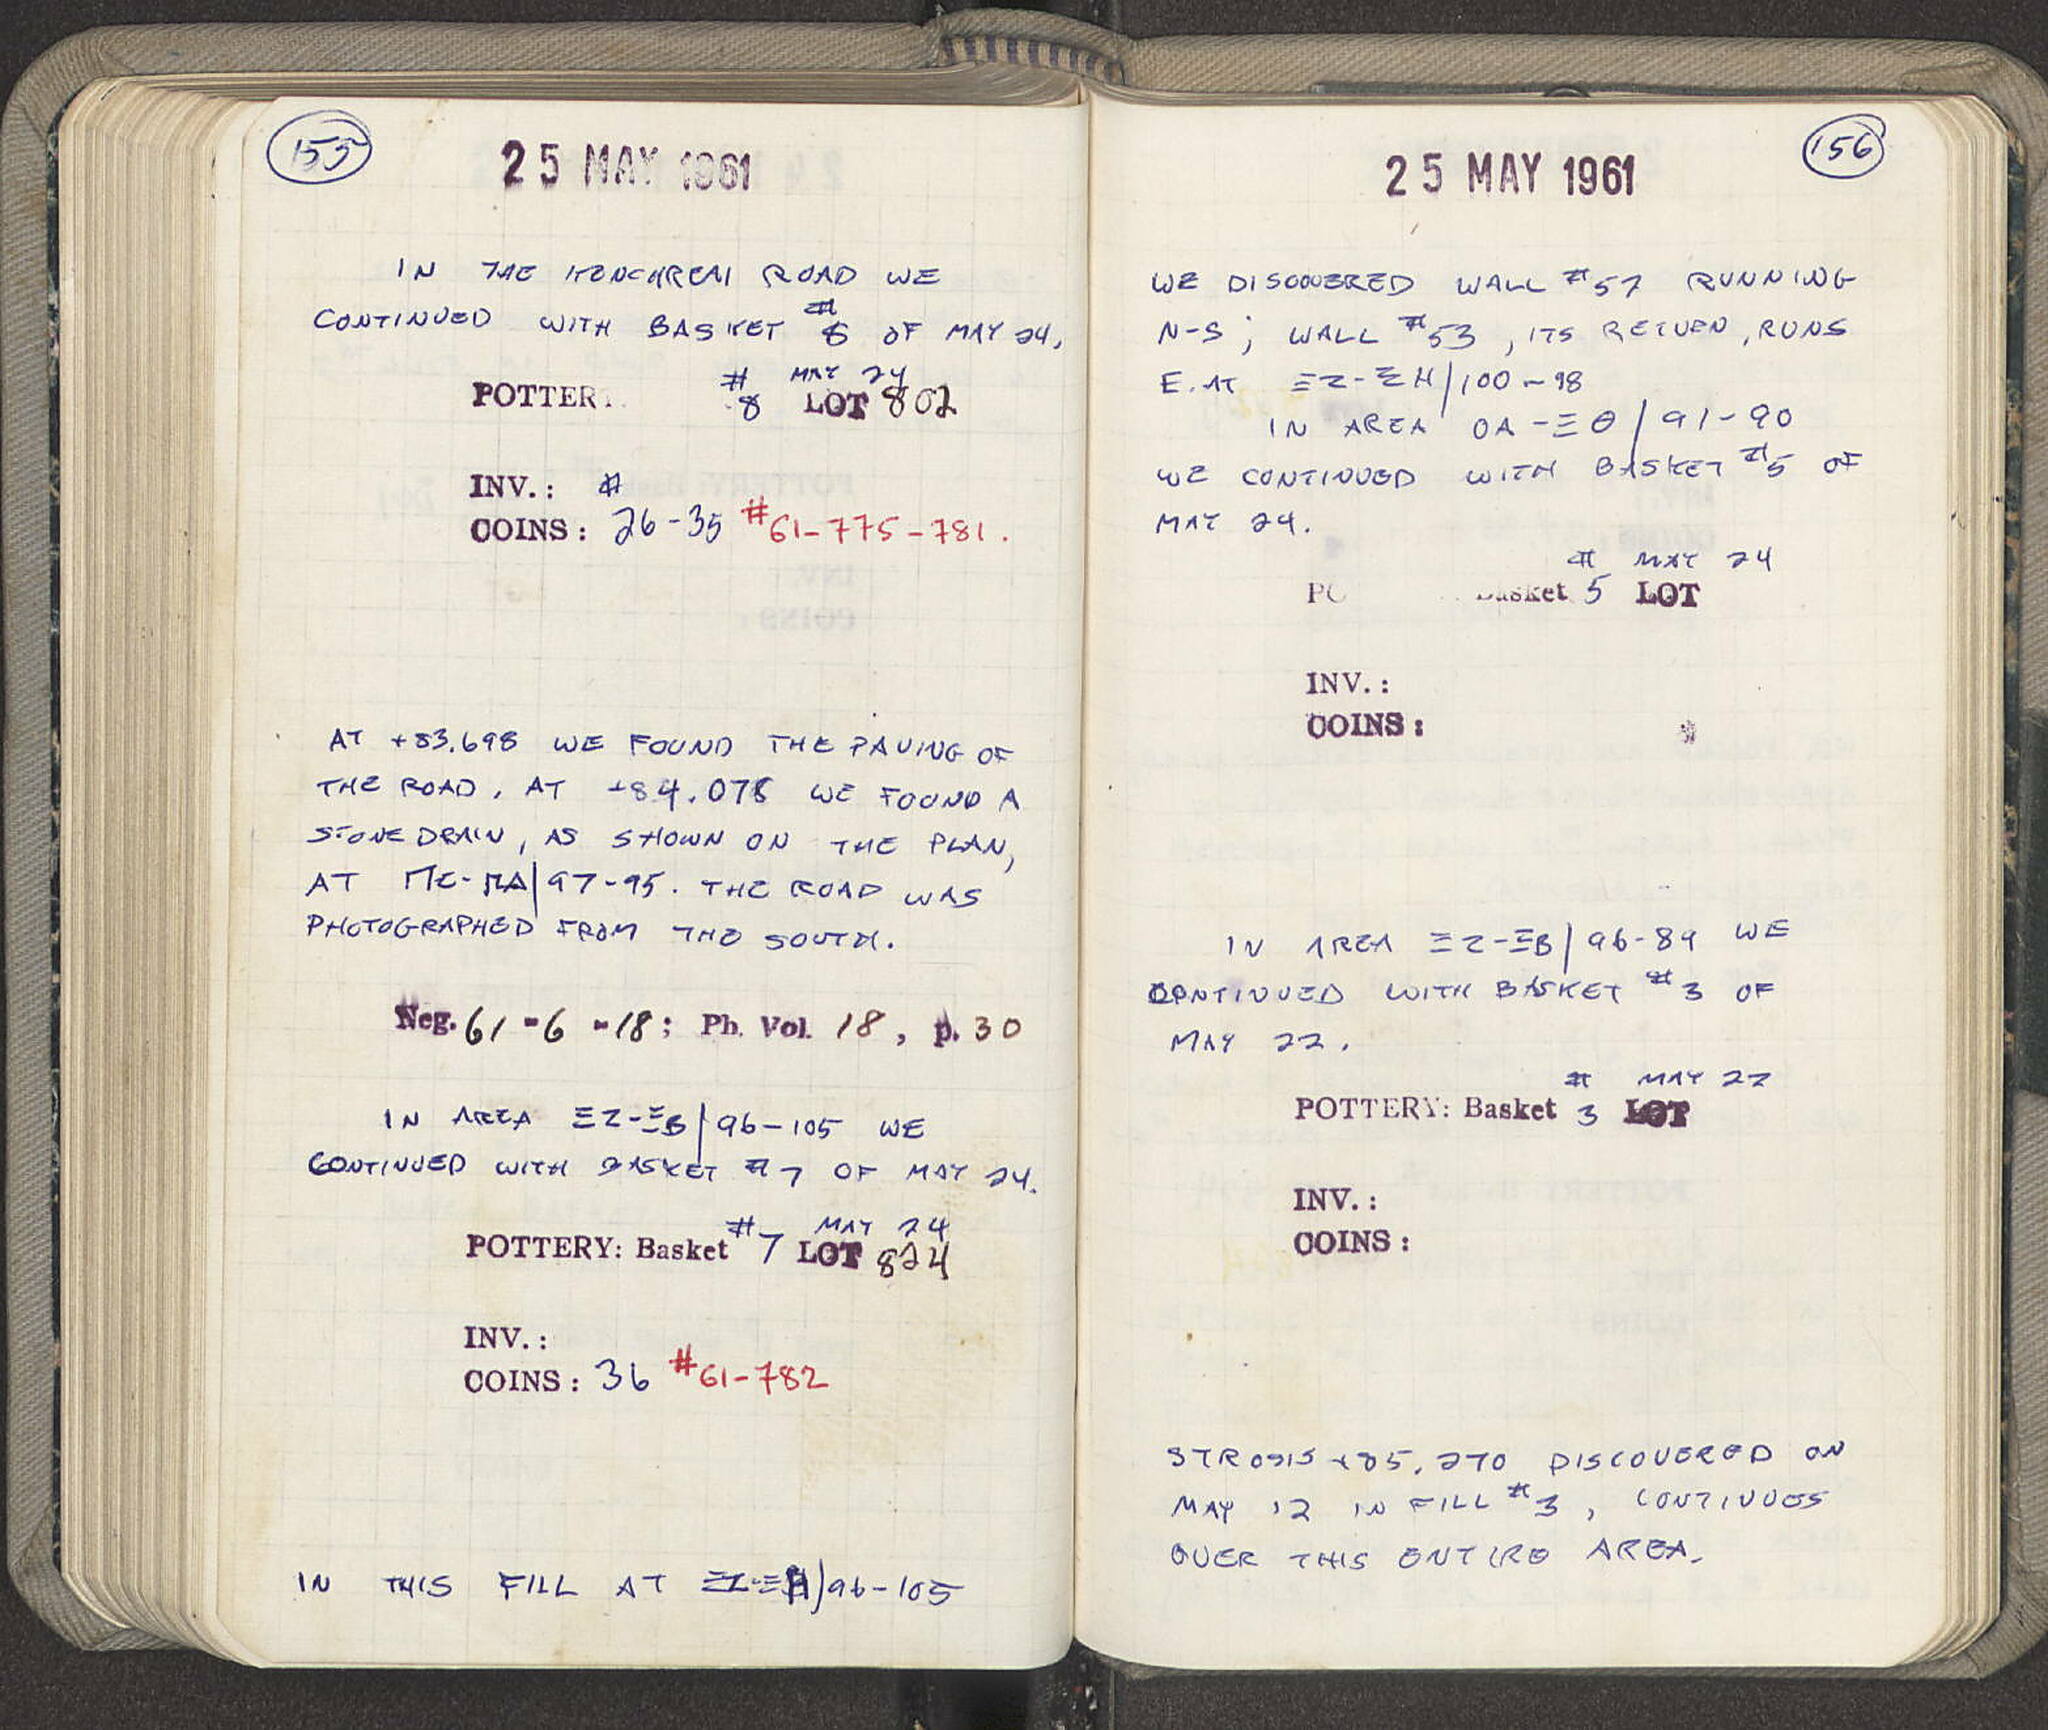 155
25 MAY 1961
IN THE KENCHREAI ROAD WE
CONTINUED WITH BASKET #8 OF MAY 24.
POTTERY #8 MAY 24 LOT 802
INV.: #
COINS: 26-35 #61-775-781.
AT +83.698 WE FOUND THE PAVING OF
THE ROAD. AT +84.078 WE FOUND A
STONE DRAIN, AS SHOWN ON THE PLAN,
AT 97-95. THE ROAD WAS
PHOTOGRAPHED FROM THE SOUTH.
Neg. 61-6-18; Ph. Vol. 18, p. 30
IN AREA ΞΖ-ΞΒ/96-105 WE
CONTINUED WITH BASKET #7 OF MAY 24.
POTTERY: Basket #7 MAY 24 LOT 824
INV.:
COINS: 36 #61-782
IN THIS FILL AT 96-105
156
25 MAY 1961
WE DISCOVERED WALL #57 RUNNING
N-S; WALL #53, ITS RETURN, RUNS
E. AT ΞΖ-ΞΗ/100-98
IN AREA ΟΑ-ΞΘ/91-90
WE CONTINUED WITH BASKET #5 OF
MAY 24.
Basket #5 MAY 24 LOT
INV.:
COINS:
IN AREA ΞΖ-ΞΒ/96-89 WE
CONTINUED WITH BASKET #3 OF
MAY 22.
POTTERY: Basket #3 MAY 22 LOT
INV.:
COINS:
STROSIS +85.270 DISCOVERED ON
MAY 12 IN FILL #3, CONTINUES
OVER THIS ENTIRE AREA.